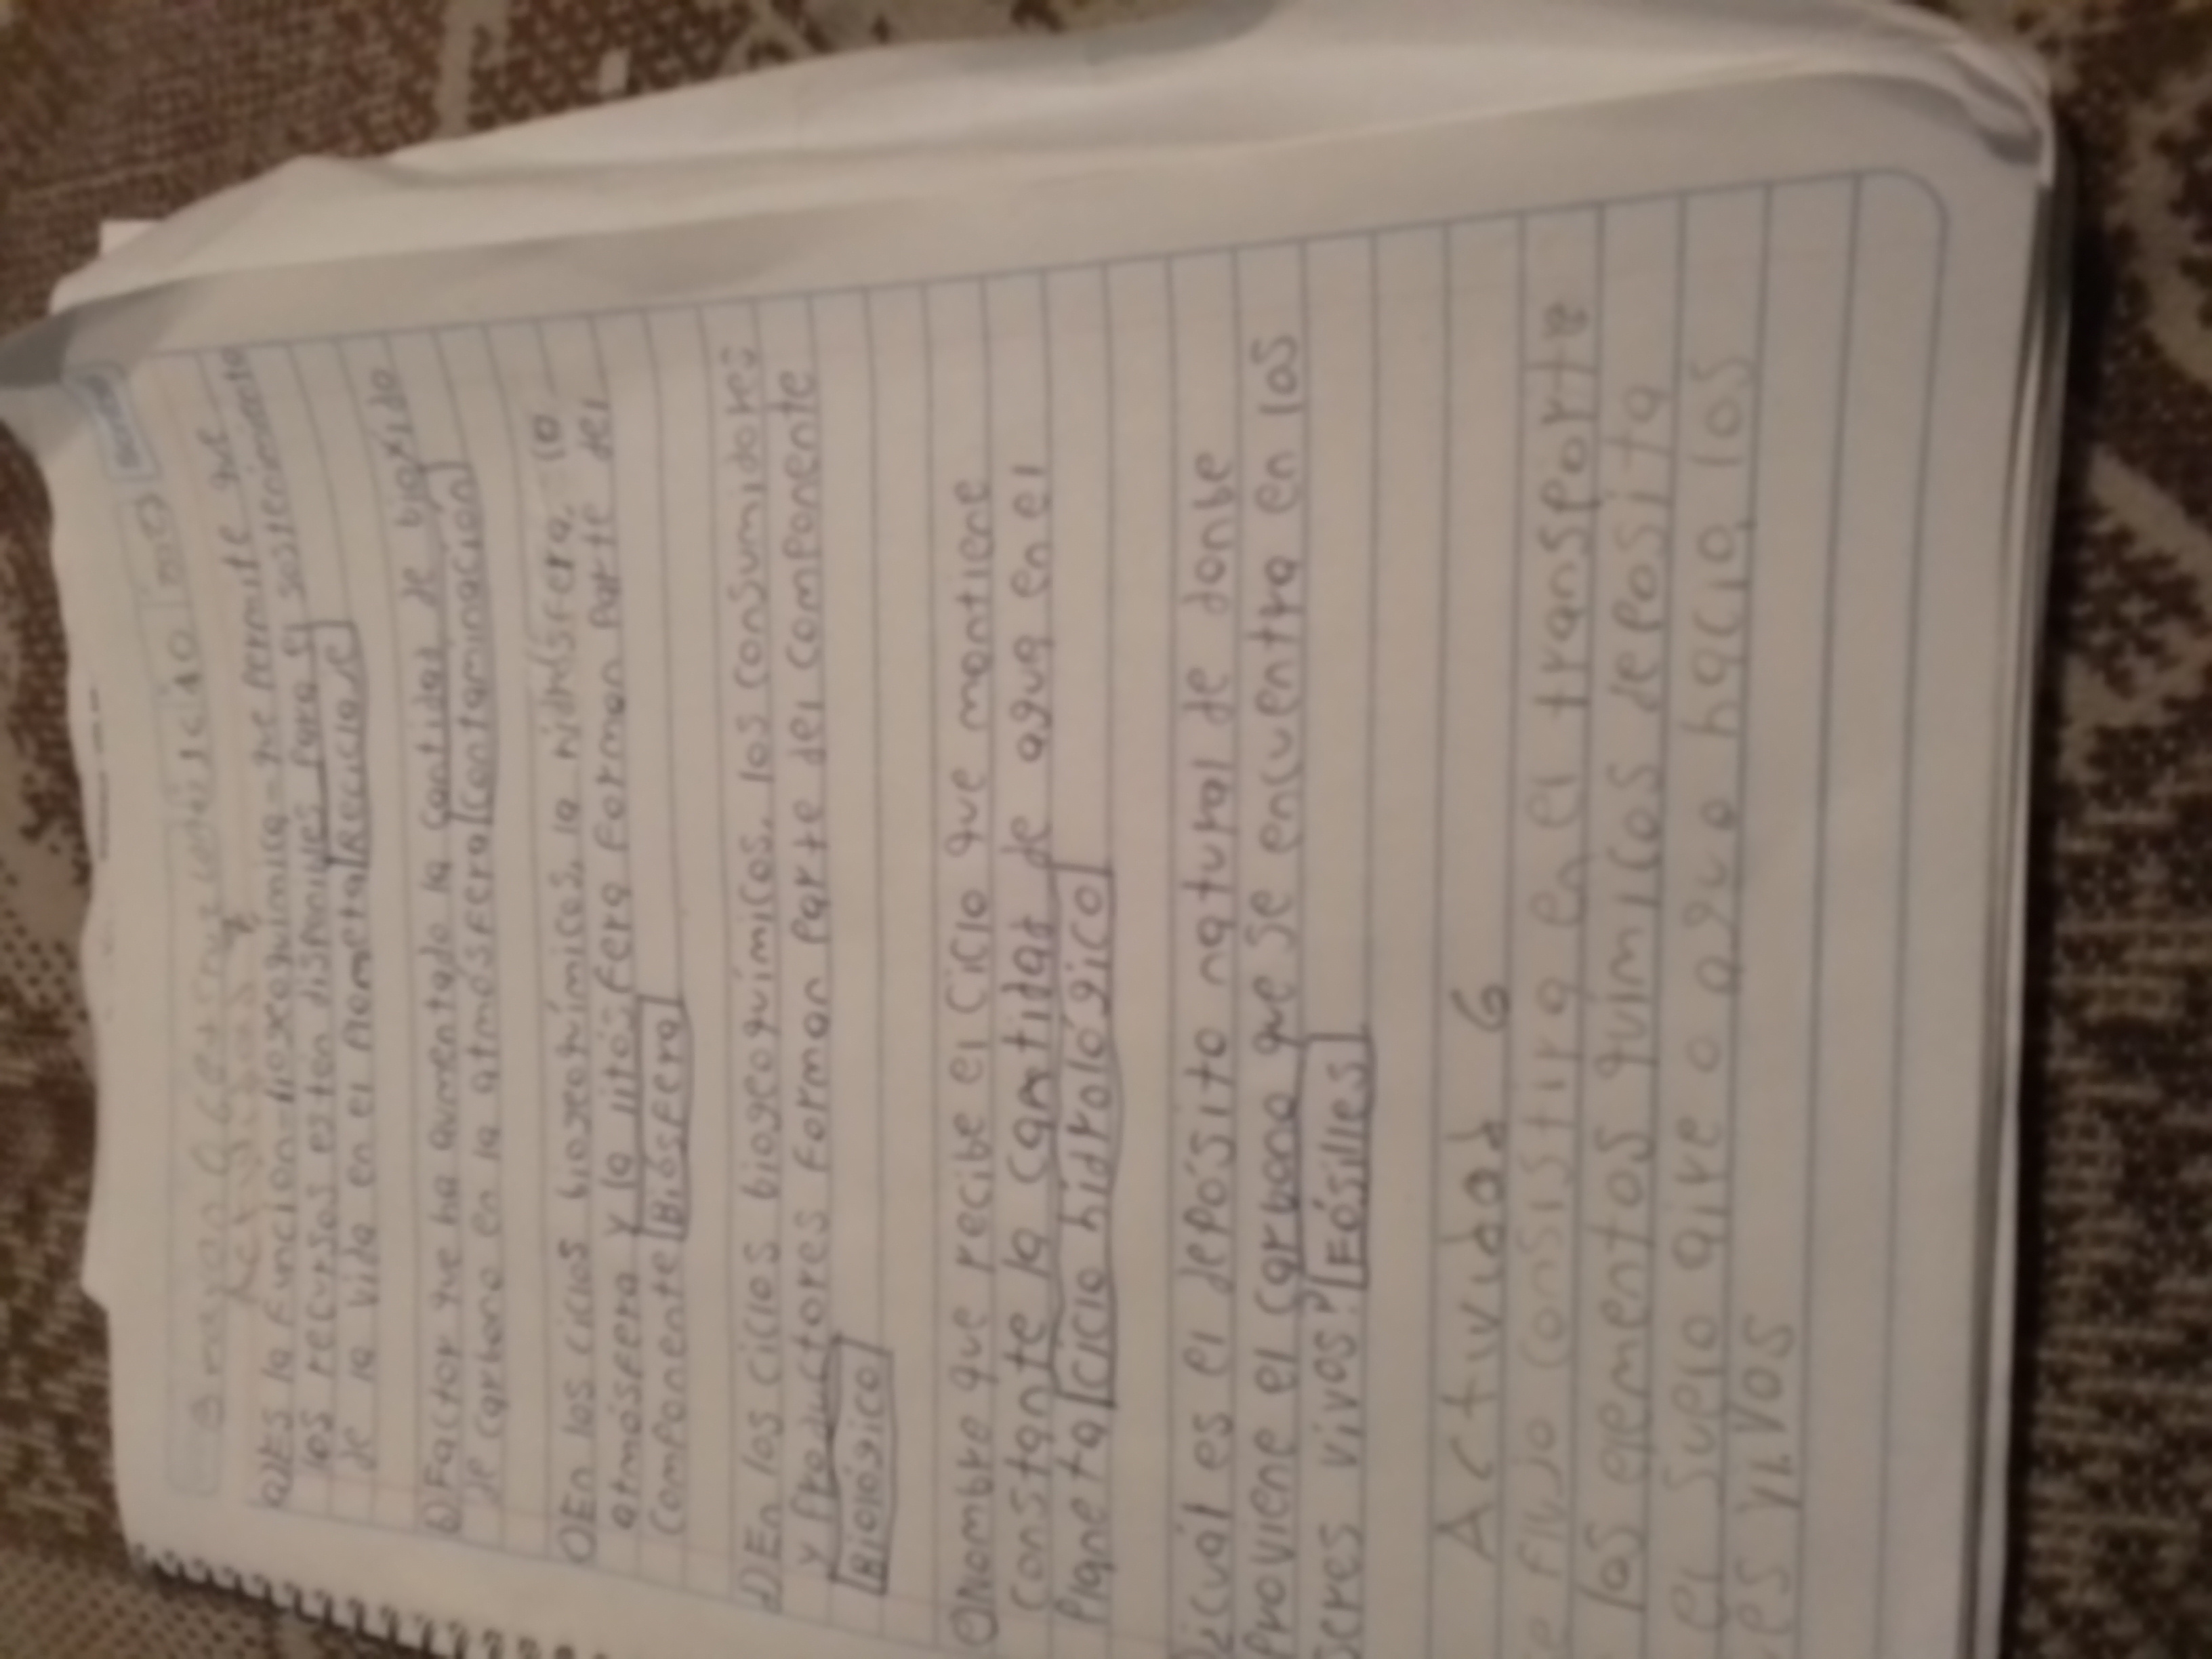 a) Es la función que permite que
los recursos estén disponibles para el sostenimiento
de la vida en el Planeta Reciclaje
b) Factor que ha aumentado la cantidad de bioxido
de carbono en la atmósfera Contaminación
En los ciclos la hidrósfera, la
atmósfera y la litósfera forman parte del
Componente Biósfera
d) En los ciclos biogeoquímicos, los consumidores
y Productores Forman Parte del Componente
Biológico
Nombre que recibe el Ciclo que mantiene
Constante la Cantidad de agua en el
Planeta Ciclo hidrológico
¿Cuál es el depósito natural de donbe
Proviene el Carbono que se encuentra en los
seres vivos? Fósilles
Actvidad 6
e flujo Consistira en el transporte
los elementos químicos deposita
el Suelo aire o agua hacia los
es vivos